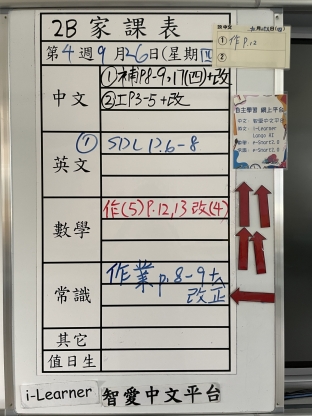 2B 家課表
第4週9月26日(星期四)
①作P.12
中文
①補P8-9,17(四)+改
②工P3-5+改
英文
① SDL P.6-8
自主學習 網上平台
中文：智愛中文平台
英文：i-Learner
數學
作(5)P.12,13 改(4)
常識
作業 p.8-9+
改正
其它
值日生
i-Learner 智愛中文平台